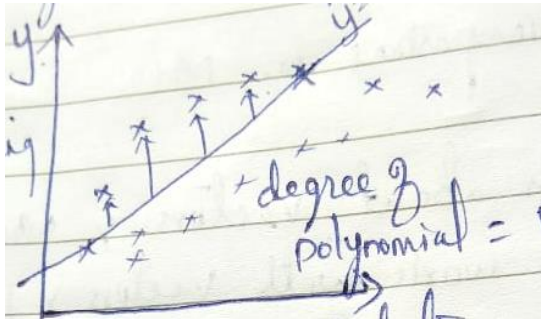 y
y
degree of
polynomial =